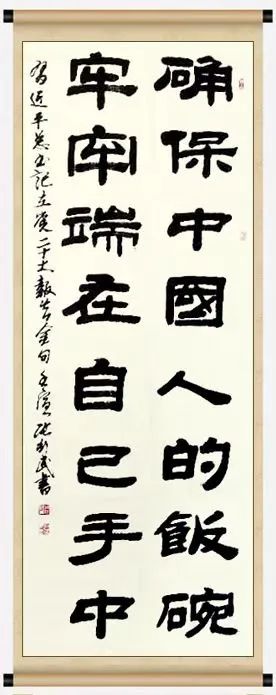 确保中國人的飯碗
牢牢端在自己手中
習近平总书記在党二十大報告金句